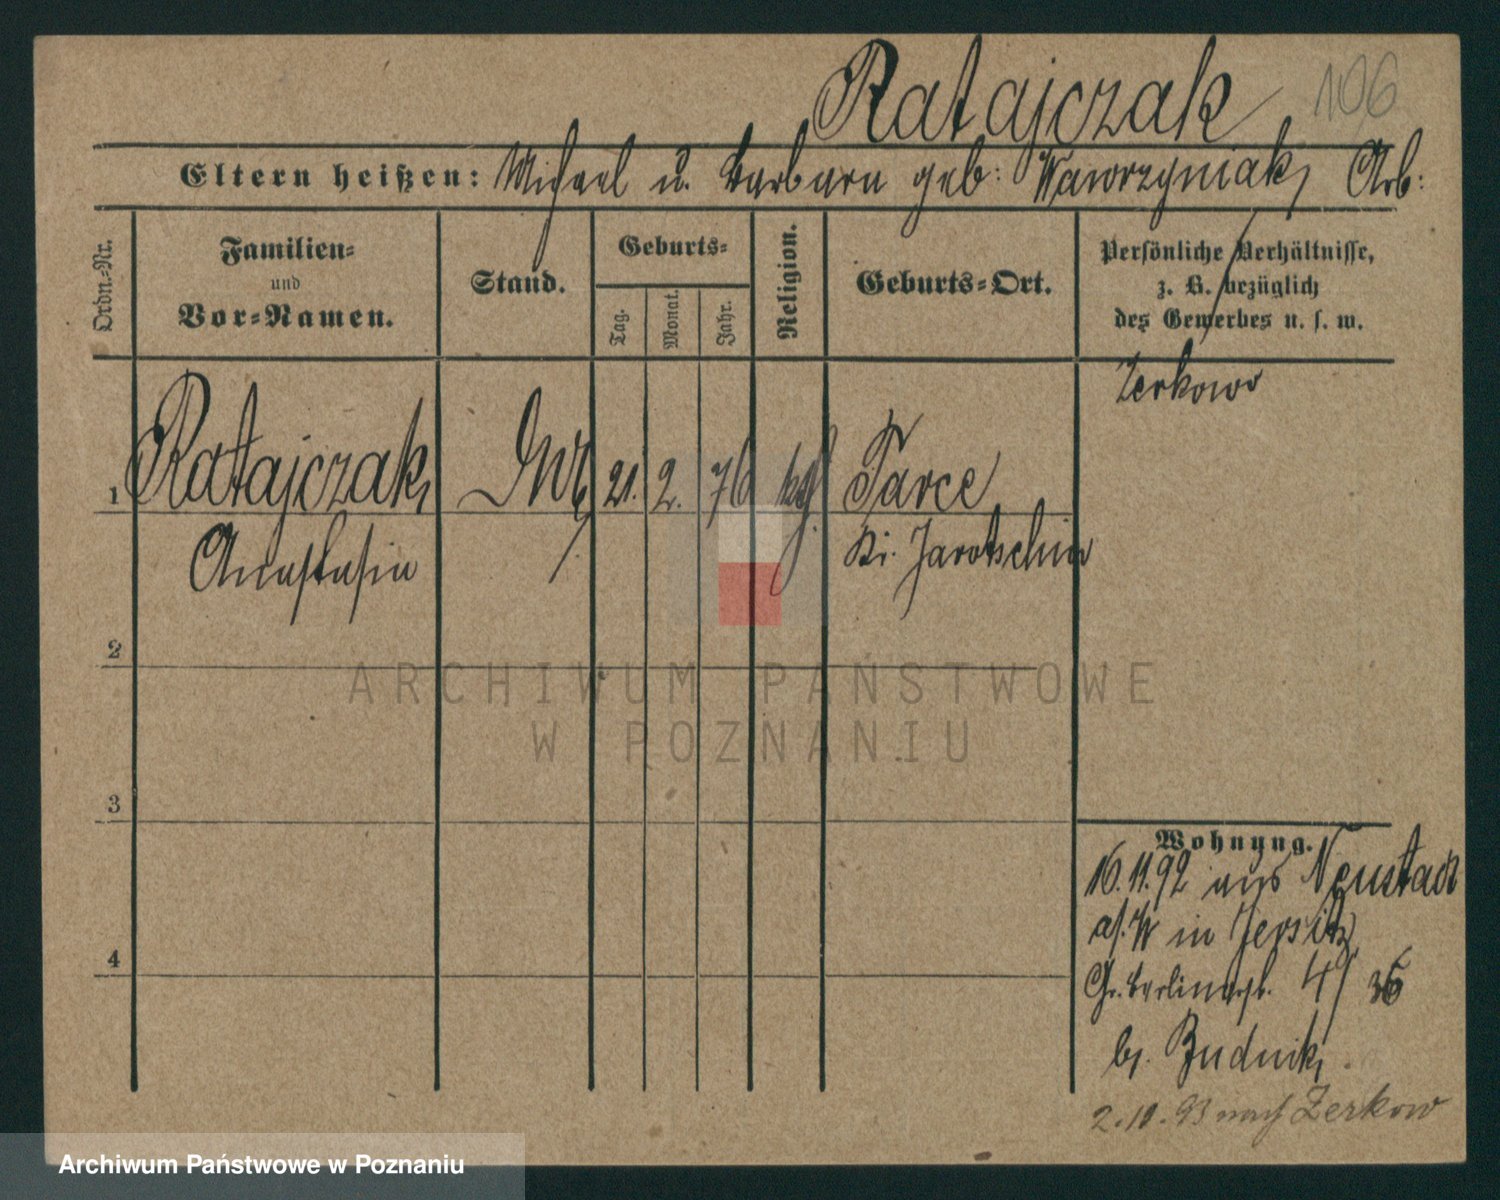 Ratajczak 106
Eltern heißen: Michael u. Barbara geb: Wawrzyniak, Arb:
Ordn.-Nr.
Familien-
und
Vor-Namen.
Stand.
Geburts-
Tag.
Monat.
Jahr.
Religion.
Geburts-Ort.
Persönliche Verhältnisse,
z. B. bezüglich
des Gewerbes u. s. w.
Zerkowo
1 Ratajczak, 21. 2. 76 Tarce
Anastasia Kr. Jarotschin
2
3
4
Wohnung.
16.11.92 aus Neustadt
a/W in Jersitz
Gr. Berlinerstr. 4/36
bj. Budnik,
2.10.93 nach Zerkow
ARCHIWUM PAŃSTWOWE
W POZNANIU
Archiwum Państwowe w Poznaniu